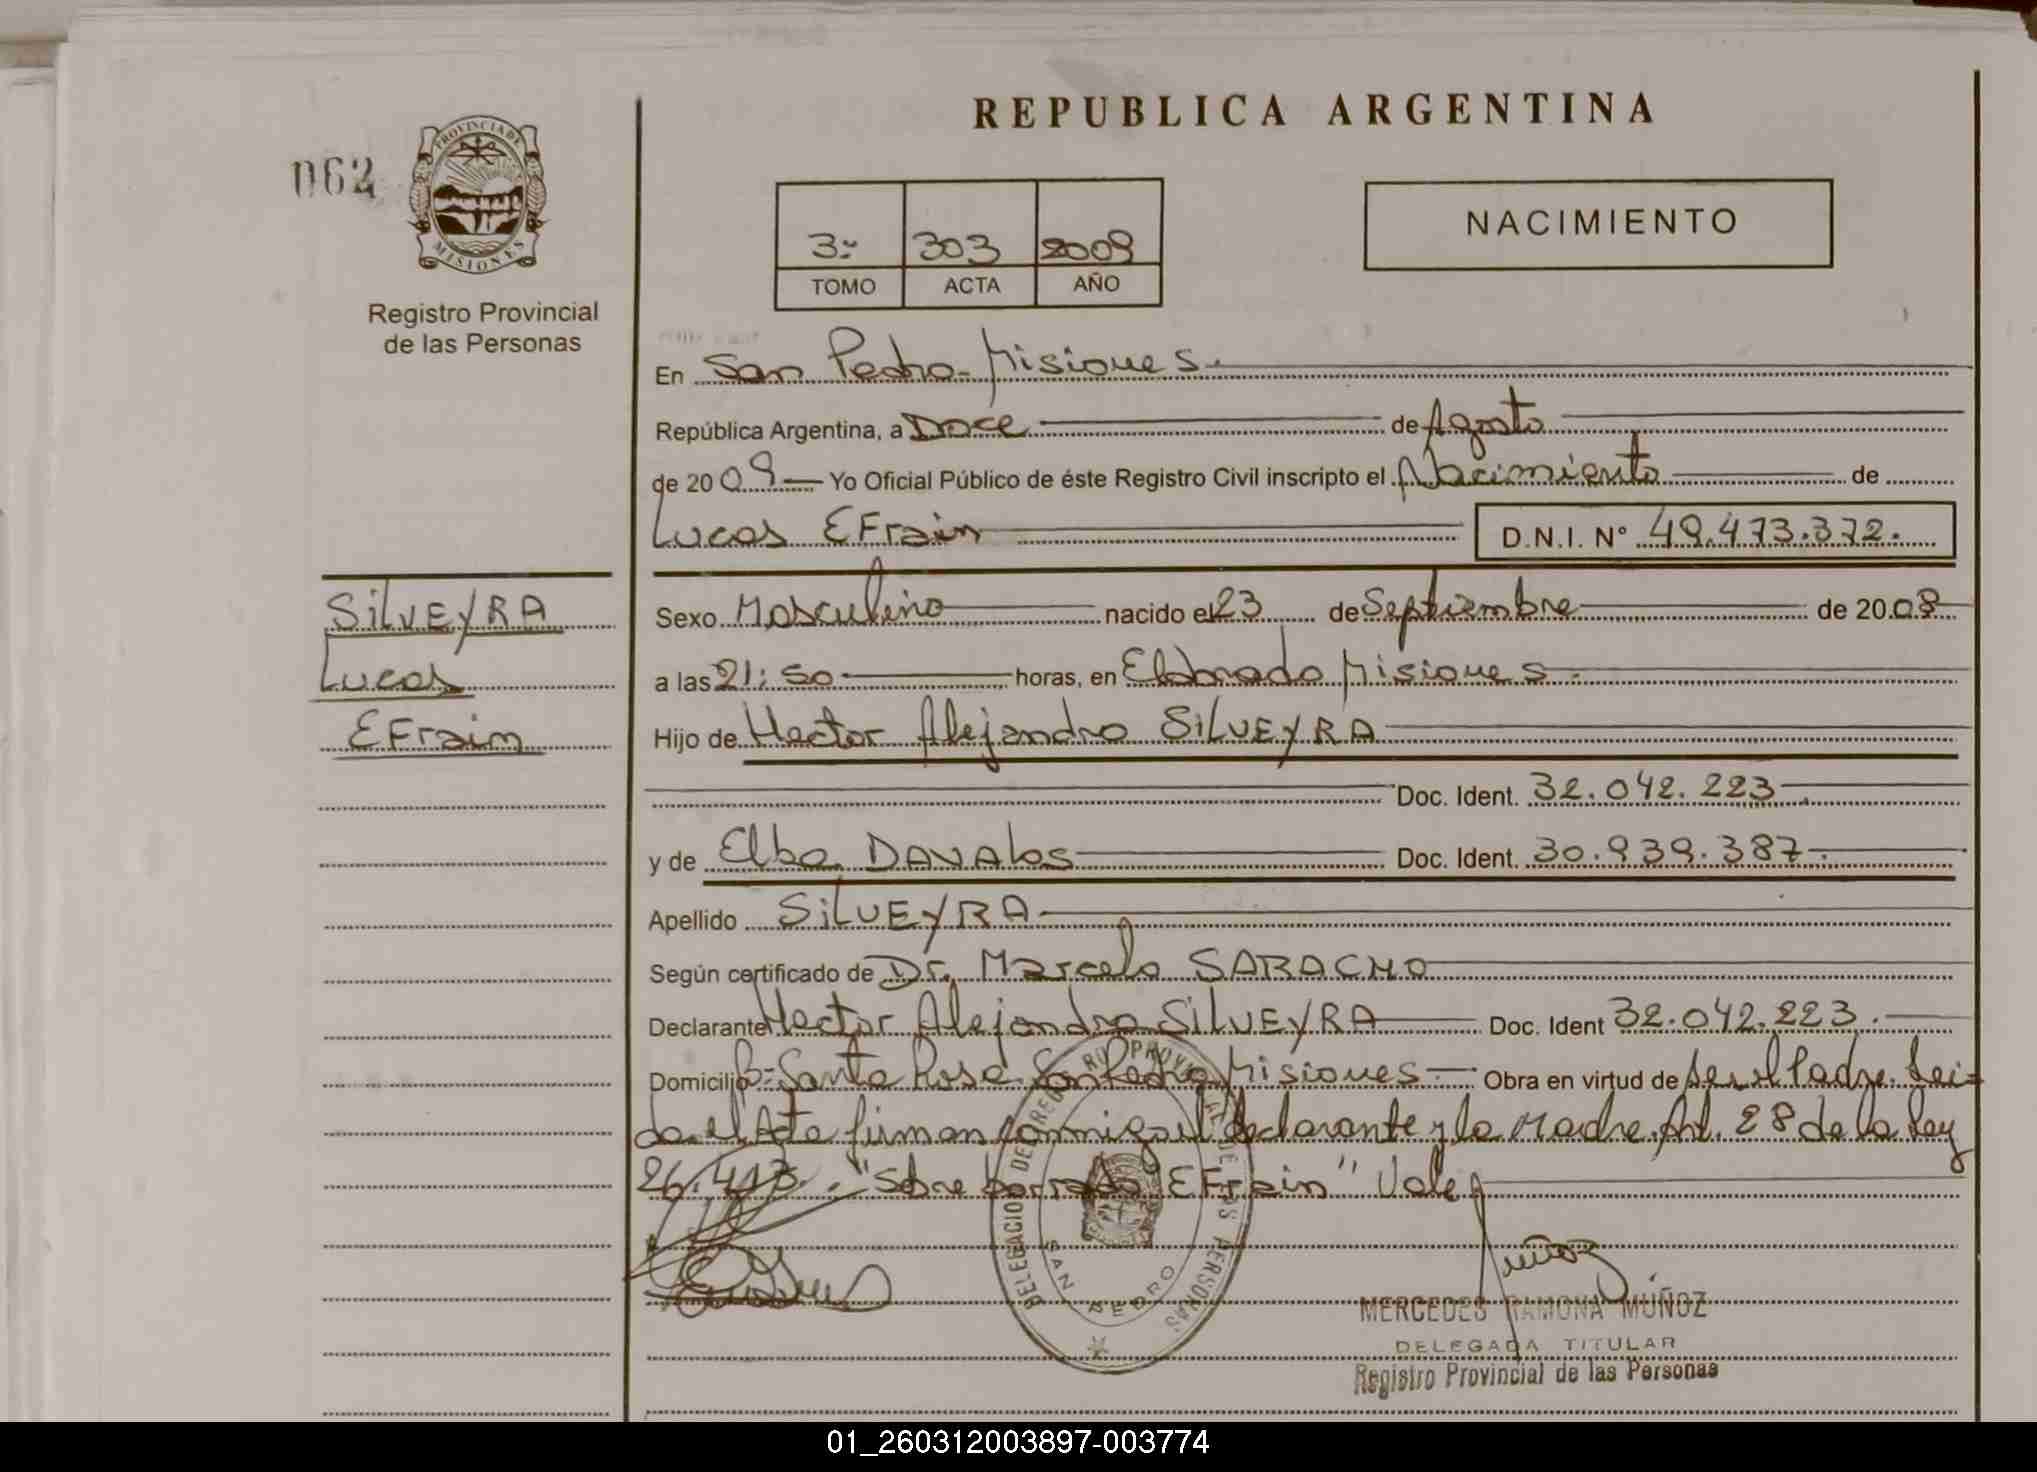 REPUBLICA ARGENTINA
062
PROVINCIA DE
MISIONES
Registro Provincial
de las Personas
3º 303 2009
TOMO ACTA AÑO
NACIMIENTO
En San Pedro - Misiones.
República Argentina, a Doce de Agosto
de 2009 Yo Oficial Público de éste Registro Civil inscripto el Nacimiento de
Lucas EFrain D.N.I. Nº 49.473.372.
SILVEYRA
Lucas
EFrain
Sexo Masculino nacido el 23 de Septiembre de 20
a las 21:50 horas, en Eldorado Misiones.
Hijo de Hector Alejandro SILVEYRA
Doc. Ident. 32.042.223
y de Elba DAVALOS Doc. Ident. 30.939.387.
Apellido SILVEYRA
Según certificado de Dr. Marcelo SARACHO
Declarante Hector Alejandro SILVEYRA Doc. Ident 32.042.223.
Domicilio Bº Santa Rosa San Pedro Misiones Obra en virtud de ser el Padre. Lei-
da el Acta firman conmigo el declarante y la Madre. Art. 28 de la Ley
26.413. "Sobre borrado EFrain" Vale
DELEGACIO DE REGISTRO PROVINCIAL DE LAS PERSONAS
SAN PEDRO
Muñoz
MERCEDES RAMONA MUÑOZ
DELEGADA TITULAR
Registro Provincial de las Personas
01_260312003897-003774